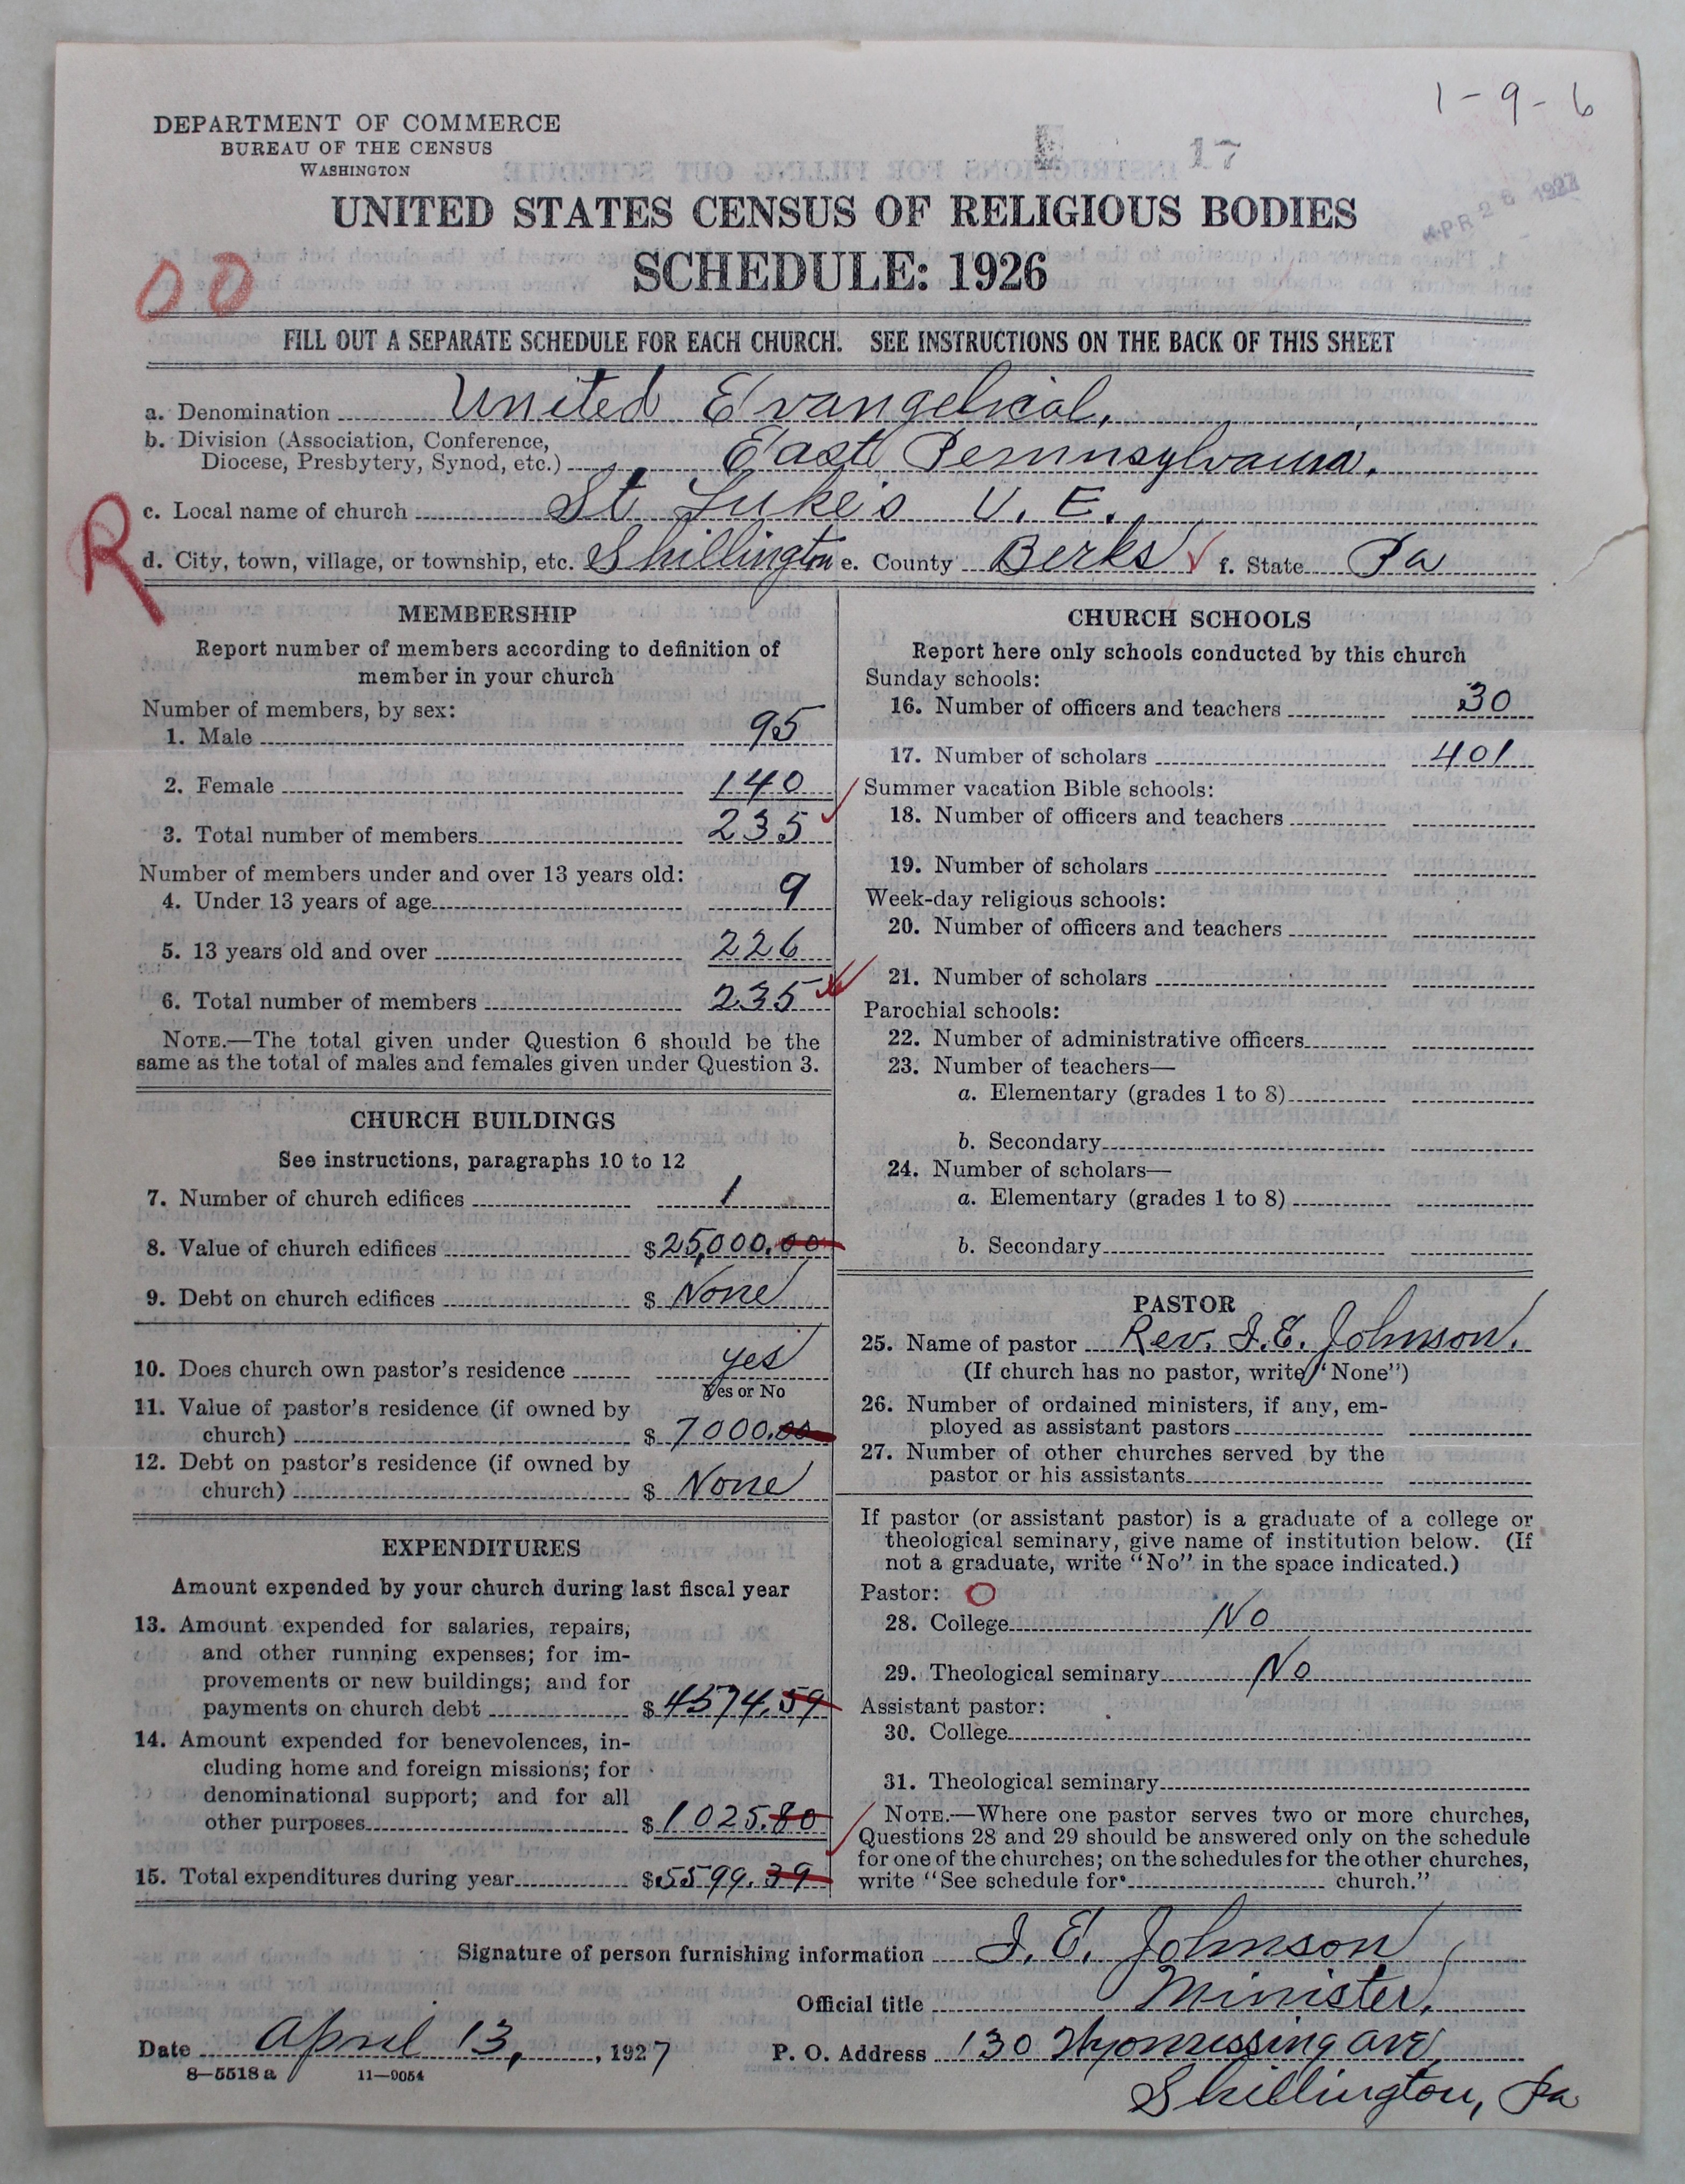 1-9-6
DEPARTMENT OF COMMERCE
BUREAU OF THE CENSUS
WASHINGTON
E 17
APR 26 1927
UNITED STATES CENSUS OF RELIGIOUS BODIES
SCHEDULE: 1926
00
FILL OUT A SEPARATE SCHEDULE FOR EACH CHURCH. SEE INSTRUCTIONS ON THE BACK OF THIS SHEET
a. Denomination United Evangelical,
b. Division (Association, Conference,
Diocese, Presbytery, Synod, etc.) East Pennsylvania.
c. Local name of church St Luke's U. E.
R
d. City, town, village, or township, etc. Shillington e. County Berks f. State Pa
MEMBERSHIP
Report number of members according to definition of
member in your church
Number of members, by sex:
1. Male 95
2. Female 140
3. Total number of members 235
Number of members under and over 13 years old:
4. Under 13 years of age 9
5. 13 years old and over 226
6. Total number of members 235
NOTE.—The total given under Question 6 should be the
same as the total of males and females given under Question 3.
CHURCH BUILDINGS
See instructions, paragraphs 10 to 12
7. Number of church edifices 1
8. Value of church edifices $25,000.00
9. Debt on church edifices $ None
10. Does church own pastor's residence yes
Yes or No
11. Value of pastor's residence (if owned by
church) $ 7000.00
12. Debt on pastor's residence (if owned by
church) $ None
EXPENDITURES
Amount expended by your church during last fiscal year
13. Amount expended for salaries, repairs,
and other running expenses; for im-
provements or new buildings; and for
payments on church debt $4574.59
14. Amount expended for benevolences, in-
cluding home and foreign missions; for
denominational support; and for all
other purposes $1025.80
15. Total expenditures during year $5599.39
CHURCH SCHOOLS
Report here only schools conducted by this church
Sunday schools:
16. Number of officers and teachers 30
17. Number of scholars 401
Summer vacation Bible schools:
18. Number of officers and teachers
19. Number of scholars
Week-day religious schools:
20. Number of officers and teachers
21. Number of scholars
Parochial schools:
22. Number of administrative officers
23. Number of teachers—
a. Elementary (grades 1 to 8)
b. Secondary
24. Number of scholars—
a. Elementary (grades 1 to 8)
b. Secondary
PASTOR
25. Name of pastor Rev. I. E. Johnson.
(If church has no pastor, write "None")
26. Number of ordained ministers, if any, em-
ployed as assistant pastors
27. Number of other churches served by the
pastor or his assistants
If pastor (or assistant pastor) is a graduate of a college or
theological seminary, give name of institution below. (If
not a graduate, write "No" in the space indicated.)
Pastor: O
28. College No
29. Theological seminary No
Assistant pastor:
30. College
31. Theological seminary
NOTE.—Where one pastor serves two or more churches,
Questions 28 and 29 should be answered only on the schedule
for one of the churches; on the schedules for the other churches,
write "See schedule for church."
Signature of person furnishing information I. E. Johnson
Official title Minister.
Date April 13, , 1927 P. O. Address 130 Wyomissing ave
8—5518 a 11—9054
Shillington, Pa